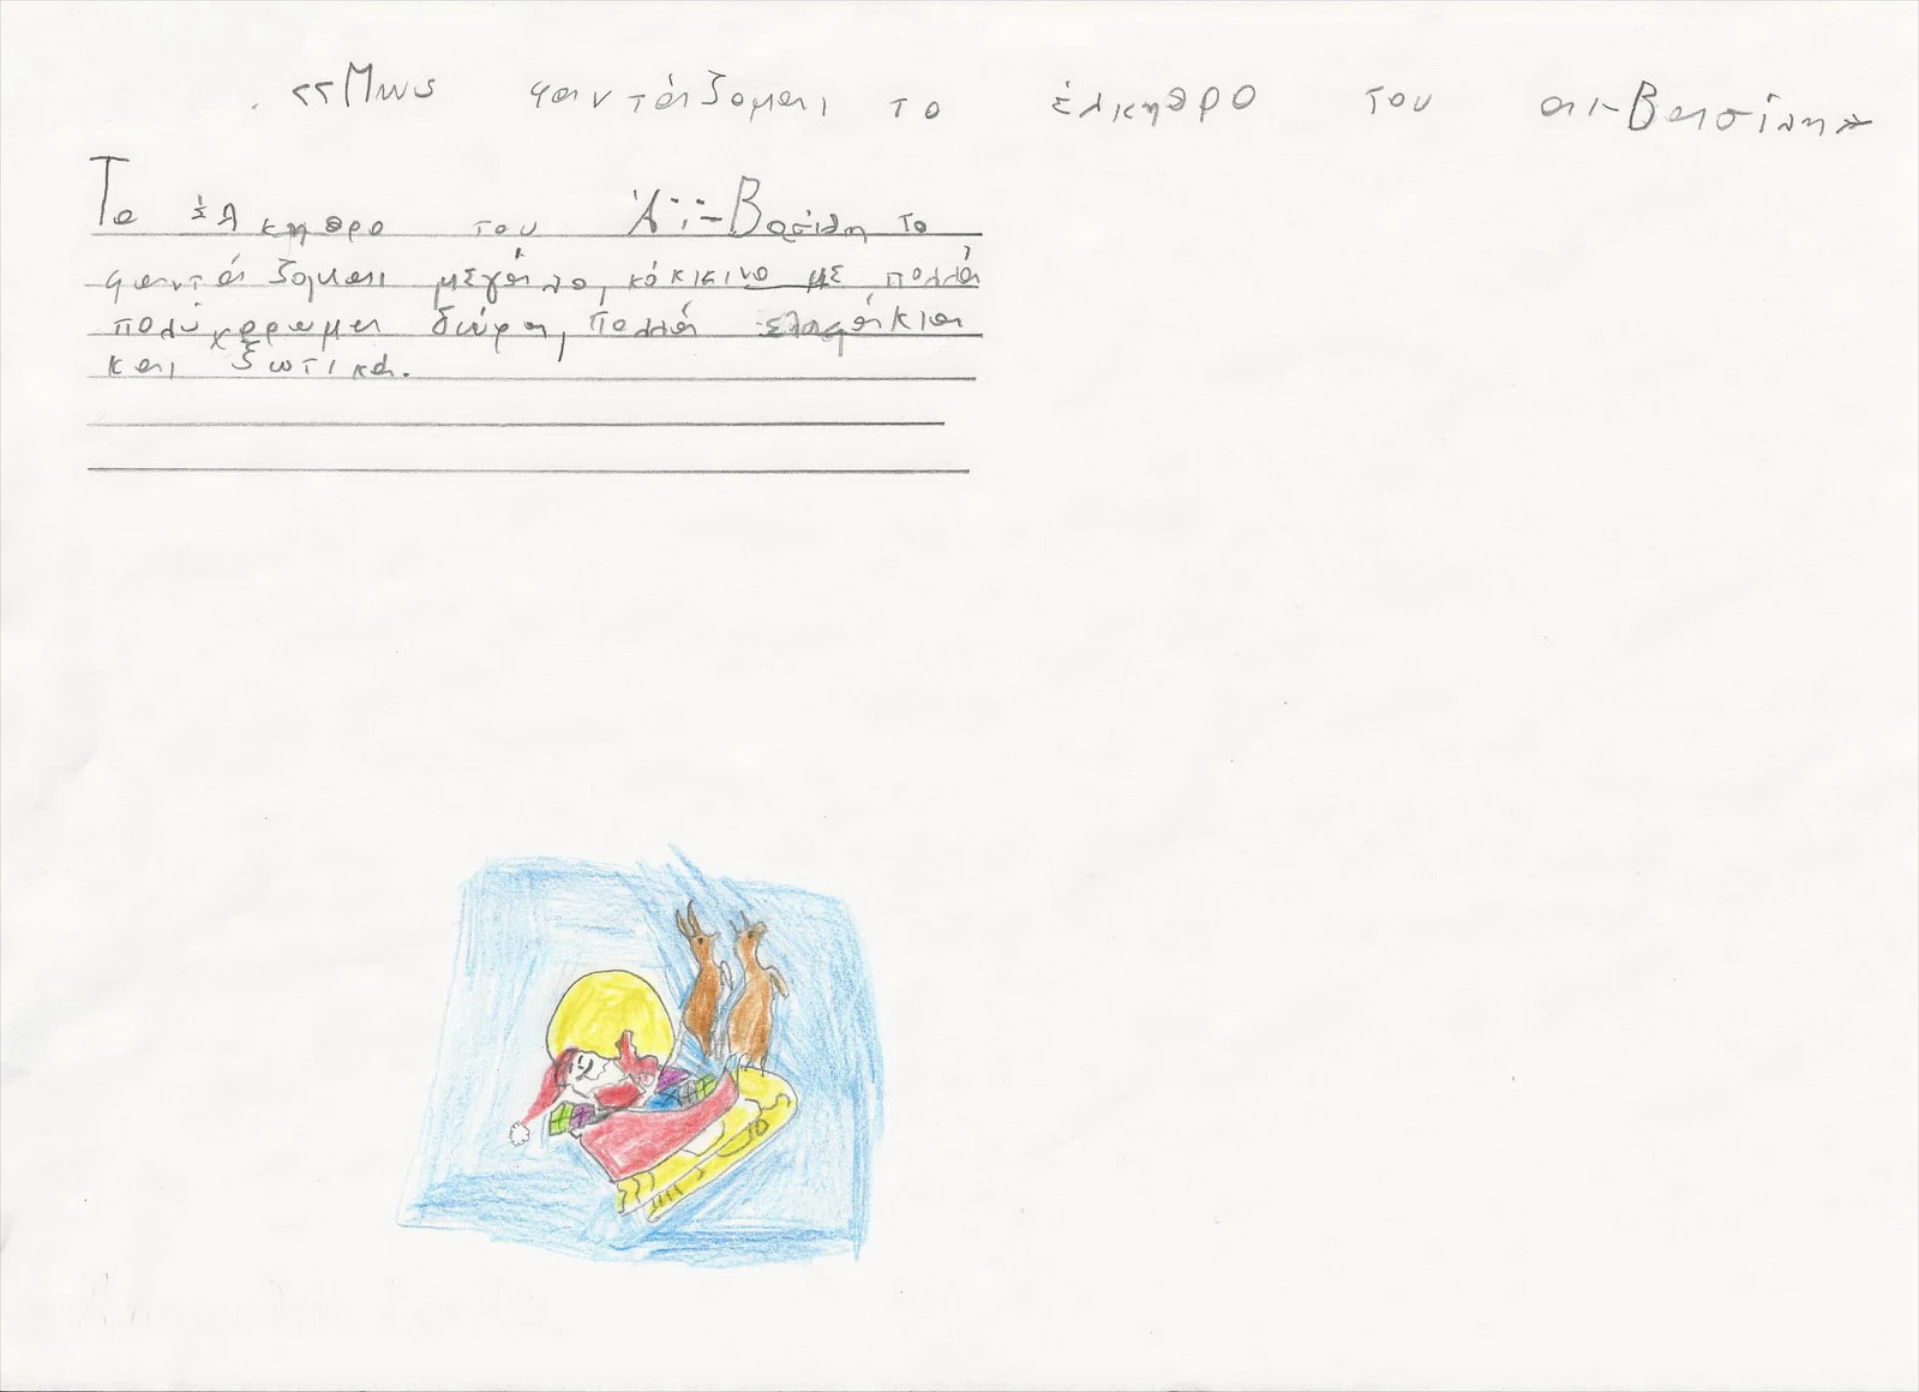 «Πως φαντάζομαι το έλκηθρο του αι-Βασίλη»
Το έλκηθρο του Άϊ-Βασίλη το
φαντάζομαι μεγάλο, κόκκινο με πολλά
πολύχρωμα δώρα, πολλά ελαφάκια
και ξωτικά.